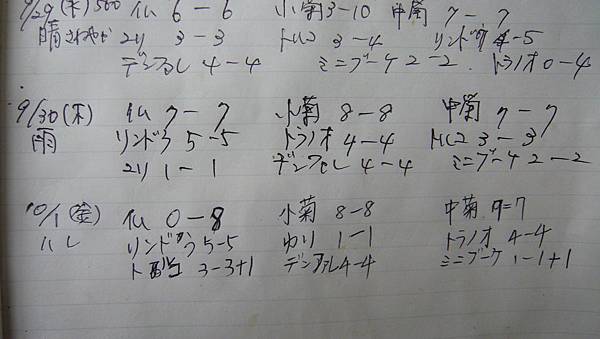 9/29(水) 500 仏 6-6 小菊 3-10 中菊 7-7
晴 さわやか ユリ 3-3 トルコ 3-4 リンドウ 4-5
デンファレ 4-4 ミニブーケ 2-2. トラノオ 0-4
9/30(木) 仏 7-7 小菊 8-8 中菊 7-7
雨 リンドウ 5-5 トラノオ 4-4 トルコ 3-3
ユリ 1-1 デンファレ 4-4 ミニブーケ 2-2
10/1(金) 仏 0-8 小菊 8-8 中菊 7=7
ハレ リンドウ 5-5 ゆり 1-1 トラノオ 4-4
ト 3-3+1 デンファレ 4-4 ミニブーケ 1-1+1